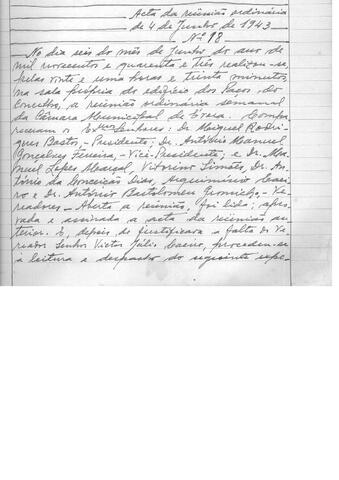 Acta da reunião ordinária
de 4 de Junho de 1943
Nº 18
No dia seis do mês de Junho do ano de
mil novecentos e quarenta e três realizou-se,
pelas vinte e uma horas e trinta minutos
na sala própria do edifício dos Paços do
Concelho, a reunião ordinária semanal
da Câmara Municipal de Évora. Compa-
receram os Exmos Senhores: Dr Miguel Rodri-
gues Bastos, - Presidente; Dr. António Manuel
Gonçalves Ferreira, - Vice-Presidente; e Dr. Ma-
nuel Lopes Marçal, Vitorino Simões, Dr. An-
tónio da Conceição Dias, Arquimínio Caei-
ro e Dr. António Bartolomeu Gromicho - Ve-
readores - Aberta a reunião, foi lida, apro-
vada e assinada a acta da reunião an-
terior. E, depois de justificada a falta do Ve-
reador Senhor Victor Júlio procedeu-se
à leitura e despacho do seguinte expe-